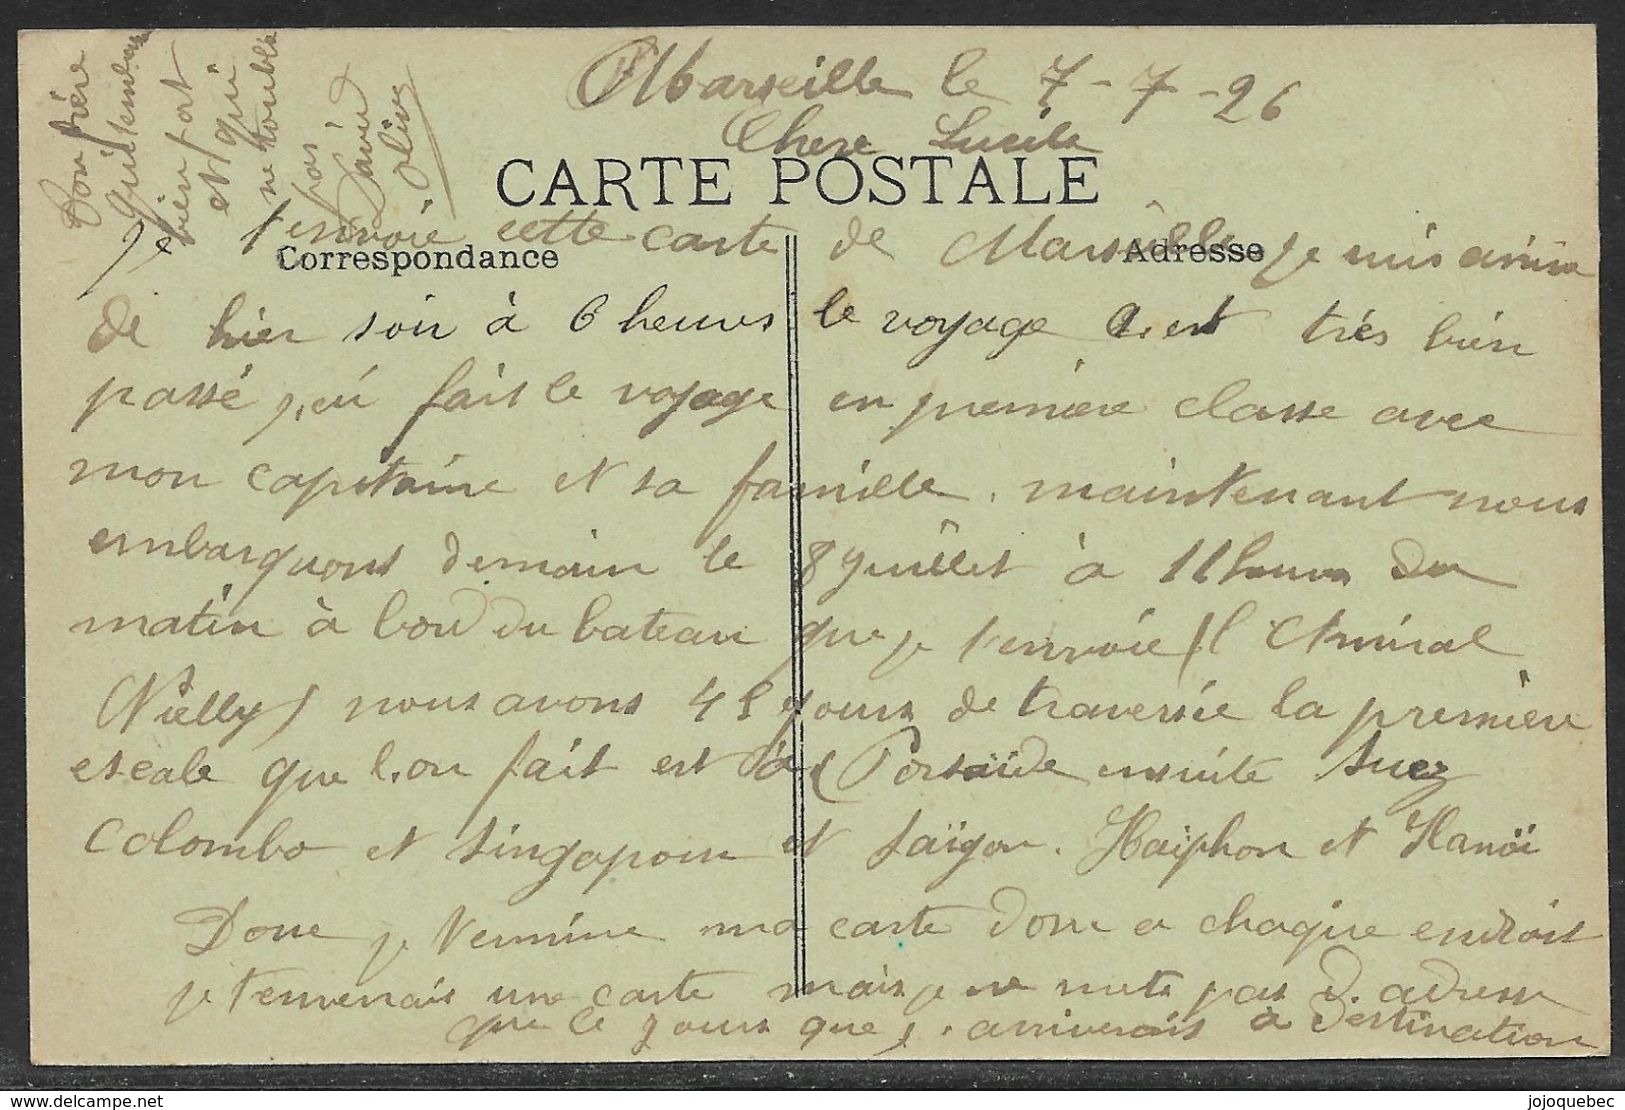 Marseille le 7-7-26
Chere Lucile
CARTE POSTALE
Correspondance
Adresse
Je t'envoie cette carte de Marseille je suis arrivé
de hier soir à 6 heures le voyage c,est très bien
passé j,ai fais le voyage en première classe avec
mon capitaine et sa famille. maintenant nous
embarquons demain le 8 juillet à 11 heures du
matin à bord du bateau que je t'envoie (l'Amiral
Nielly) nous avons 45 jours de traversée la première
escale que l,on fait est à (Porsaïde ensuite Suez
Colombo et Singapour et Saïgon. Haiphon et Hanoï
Donc je termine ma carte donc a chaque endroit
je t'enverrais une carte mais je ne mets pas d,adresse
que le jours que j,arriverais à destination
Ton frère
qui t'embrasse
bien fort
et qui
ne t'oublie
pas
David
Olive
delcampe.net
jojoquebec